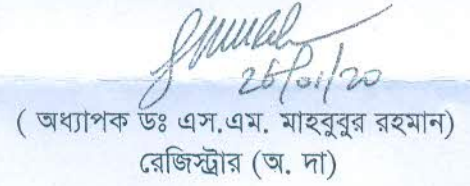 26/01/20
( অধ্যাপক ডঃ এস.এম. মাহবুবুর রহমান)
রেজিস্ট্রার (অ. দা)